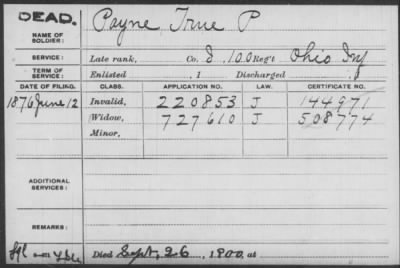 DEAD. Payne, True P
NAME OF SOLDIER:
SERVICE: Late rank, Co. D, 100 Reg't Ohio Inf
TERM OF SERVICE: Enlisted , 1 Discharged , 1
DATE OF FILING. CLASS. APPLICATION NO. LAW. CERTIFICATE NO.
1876 June 12 Invalid, 220853 J 144971
Widow, 727610 J 508774
Minor,
ADDITIONAL SERVICES:
REMARKS:
Died Sept. 26, 1900, at